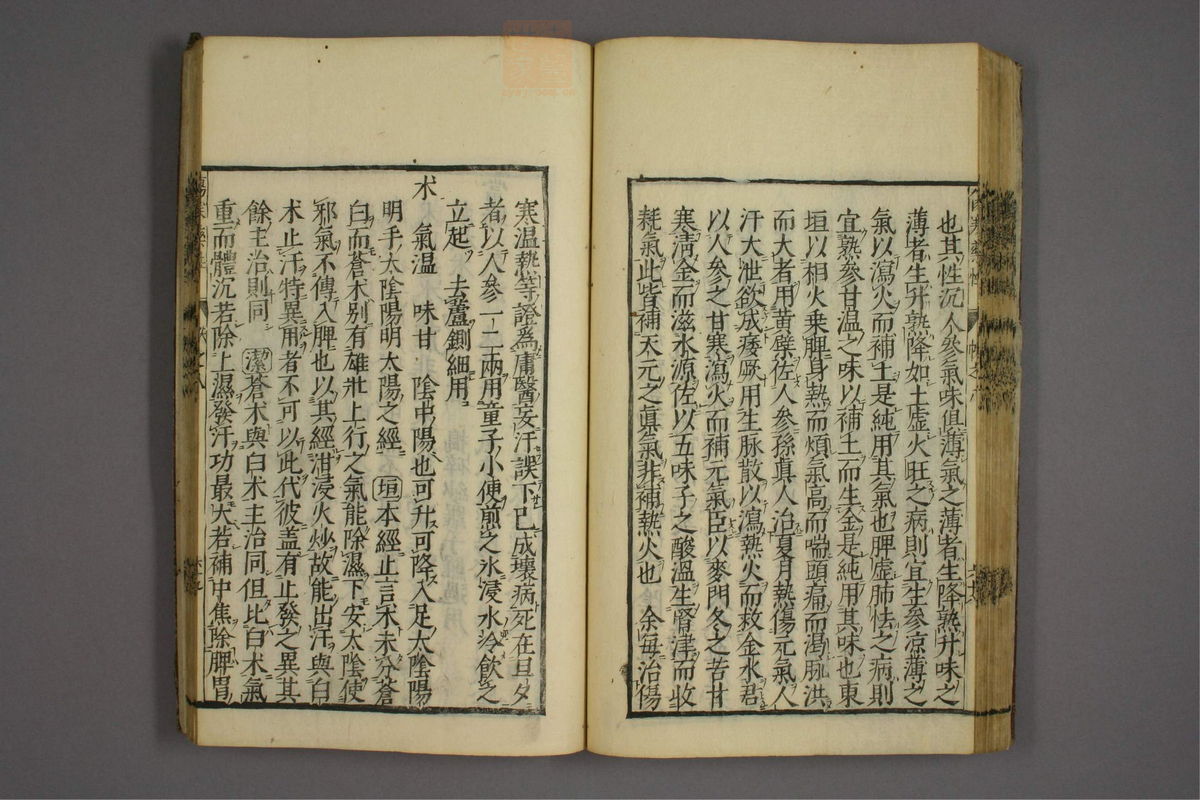 也其性沉人參氣味俱薄氣之薄者生降熟升味之
薄者生升熟降如土虛火旺之病則宜生參凉薄之
氣以瀉火而補土是純用其氣也脾虛肺怯之病則
宜熟參甘温之味以補土而生金是純用其味也東
垣以相火乗脾身熱而煩氣高而喘頭痛而渴脉洪
而大者用黄蘗佐人參孫真人治夏月熱傷元氣人
汗大泄欲成痿厥用生脉散以瀉熱火而救金水君
以人參之甘寒瀉火而補元氣臣以麥門冬之苦甘
寒清金而滋水源佐以五味子之酸温生腎津而收
耗氣此皆補天元之眞氣非補熱火也 余每治傷
寒温熱等證爲庸醫妄汗誤下已成壞病死在旦夕
者以人參一二兩用童子小便煎之氷浸水冷飲之
立起 去蘆剉細用
朮 氣温 味甘 陰中陽也可升可降入足太陰陽
明手太陰陽明太陽之經 垣本經止言朮未分蒼
白而蒼朮別有雄壯上行之氣能除濕下安太陰使
邪氣不傳入脾也以其經泔浸火炒故能出汗與白
朮止汗特異用者不可以此代彼盖有止發之異其
餘主治則同 潔蒼朮與白朮主治同但比白朮氣
重而體沉若除上濕發汗功最大若補中焦除脾胃